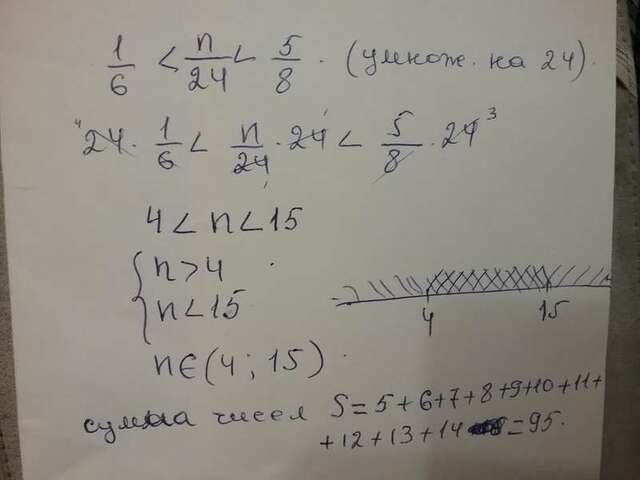 1/6 < n/24 < 5/8 . (умнож. на 24).
4 24 · 1/6 < n/24 · 24 < 5/8 · 24 3
4 < n < 15
{ n > 4
n < 15
4 15
n ∈ (4 ; 15) .
сумма чисел S = 5 + 6 + 7 + 8 + 9 + 10 + 11 +
+ 12 + 13 + 14 = 95.